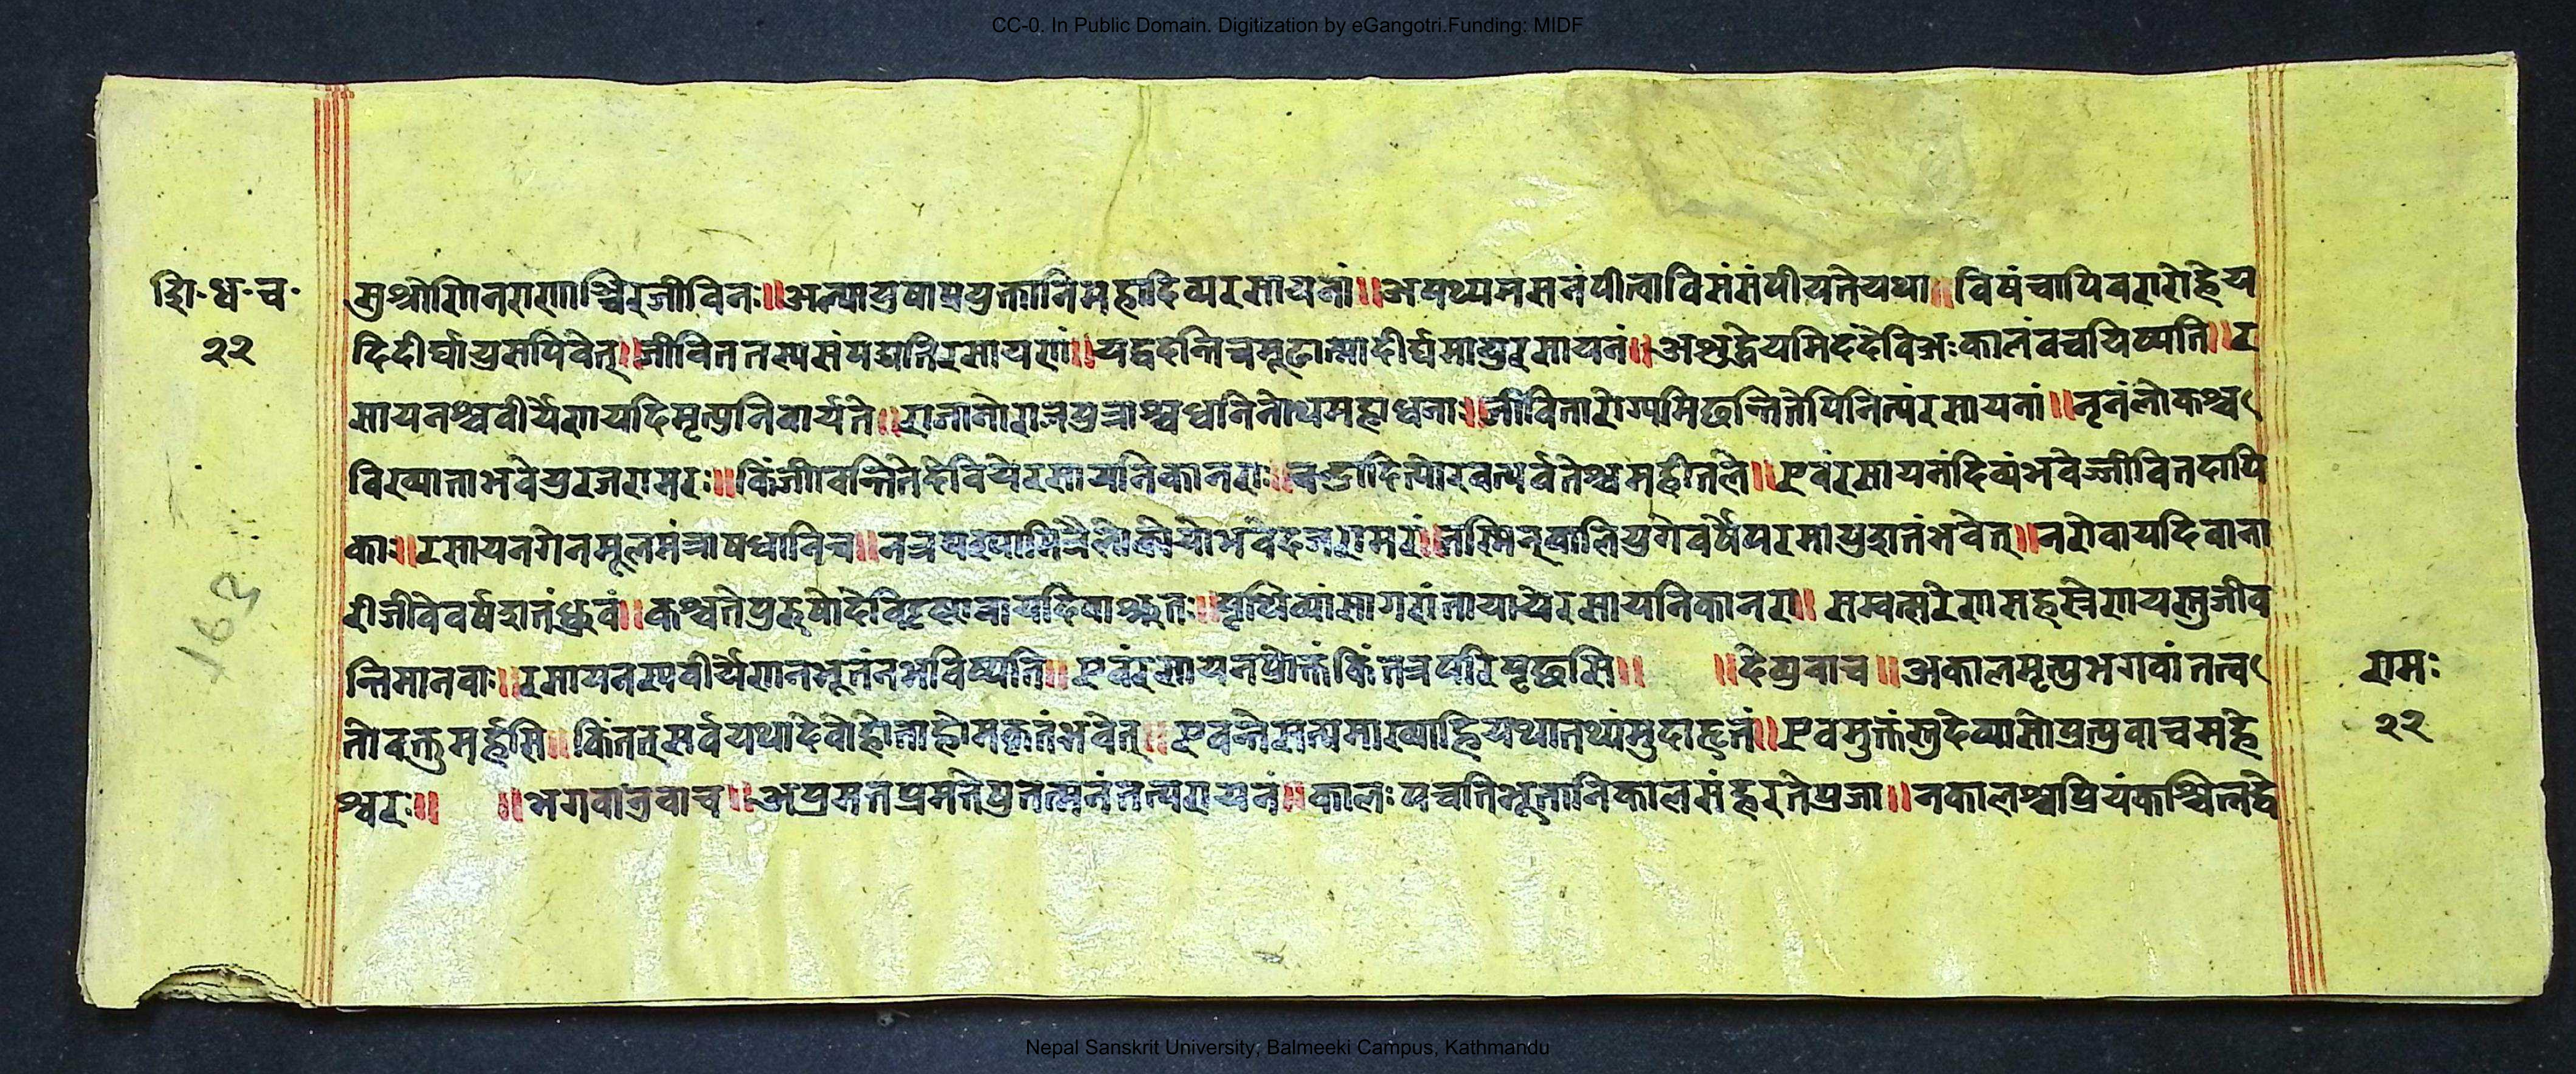 CC-0. In Public Domain. Digitization by eGangotri.Funding: MIDF
शि॰ध॰च॰
२२
सुश्रोणिनराणाश्चिरजीविनः॥अल्पायुषाप्रयुक्तानिमहादिव्यरसायनां॥अपथ्यमसनंपीत्वाविसंसंपीयतेयथा॥विषंचापिवरारोहेय
दिदीर्घायुसपिवेत्॥जीविततस्यसंपद्यतिरसायणां॥यद्वदन्तिचमूढात्मादीर्घमायुरसायनं॥अशुद्धेयमिदंदेविअःकालंवचयिष्यति॥र
सायनश्चवीर्येणयदिमृत्युनिवार्यते॥राजानोराजपुत्राश्चधनिनोथमहाधना॥जीवितारोग्यमिछन्तितेपिनित्यंरसायनां॥नृनंलोकश्च
विख्याताभवेयुरजरामरः॥किंजीवन्तितेदेवियेरसायनिकानराः॥चन्द्रादित्योरवत्पर्वतेश्चमहीतले॥एवंरसायनंदिव्यंभवेज्जीवितदापि
काः॥रसायनगेनमूलमंत्रोषधानिच॥नत्रपश्यामित्रैलोक्येयोभवेदजरामरं॥तस्मिन्कालियुगेवर्षेपरमायुशतंभवेत्॥नरोवायदिवाना
रीजीवेवर्षशतंध्रुवं॥कश्चतेपुरुषोदेविदृष्टावायदिवाश्रुतः॥पृथिव्यांसागरांतायायेरसायनिकानरा॥सम्वत्सरेणसहस्रेणयस्तुजीव
न्तिमानवाः॥रसायनस्यवीर्येणनभूतंनभविष्यति॥एवंरसायनप्रोक्तंकिंतत्रपरिपृछसि॥ ॥देव्युवाच॥अकालमृत्युभगवांतत्व
तोवक्तुमर्हसि॥किंतत्सर्वयथादेवोहोताहोमकृतंभवेत्॥एवन्तेसत्यमाख्याहियथातथ्यंमुदाहृतं॥एवमुक्तंस्तुदेव्यासोप्रत्युवाचमहे
श्वरः॥ ॥भगवांनुवाच॥अप्रमतप्रमतेपुतत्मनंतत्परायनं॥कालःपचतिभूतानिकालसंहरतेप्रजा॥नकालश्चप्रियंकश्चित्नद्वे
रामः
२२
162
Nepal Sanskrit University, Balmeeki Campus, Kathmandu